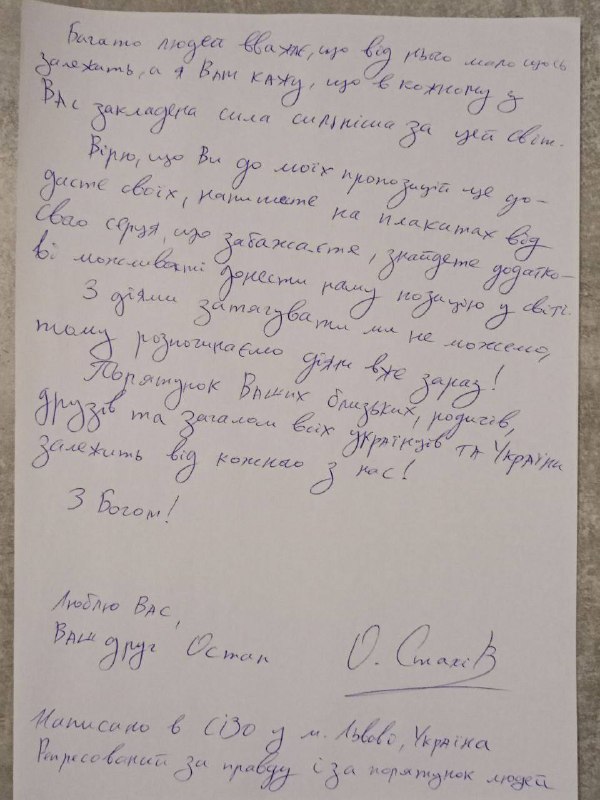 Багато людей вважає, що від нього мало щось
залежить, а я Вам кажу, що в кожному з
Вас закладена сила сильніша за цей світ.
Вірю, що Ви до моїх пропозицій ще до-
дасте своїх, напишете на плакатах від
свого серця, що забажаєте, знайдете додатко-
ві можливості донести нашу позицію у світі.
З діями затягувати ми не можемо,
тому розпочинаємо діяти вже зараз!
Порятунок Ваших близьких, родичів,
друзів та загалом всіх українців та України
залежить від кожного з нас!
З Богом!
Люблю Вас,
Ваш друг Остап
О. Стахів
Написано в СІЗО у м. Львово, Україна
Репресований за правду і за порятунок людей